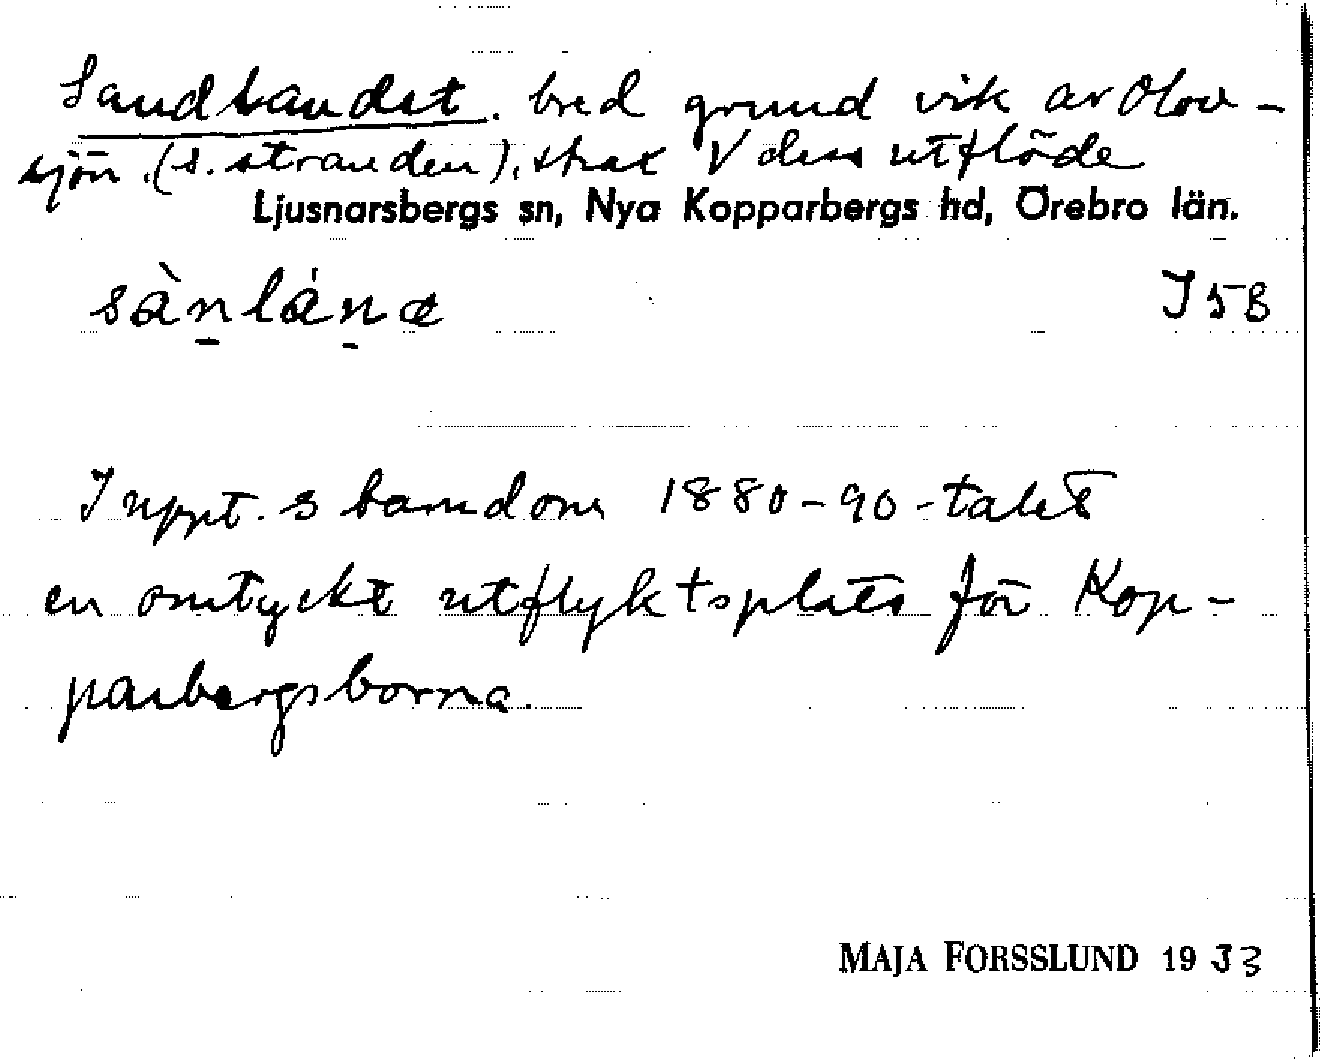 Sandlandet. bred grund vik av Olov-
sjön. (s. stranden), strax V dess utflöde
Ljusnarsbergs sn, Nya Kopparbergs hd, Örebro län.
sànlánæ I 5 B
I uppt. s barndom 1880-90-talet
en omtyckt utflyktsplats för Kop-
parbergsborna.
MAJA FORSSLUND 1933